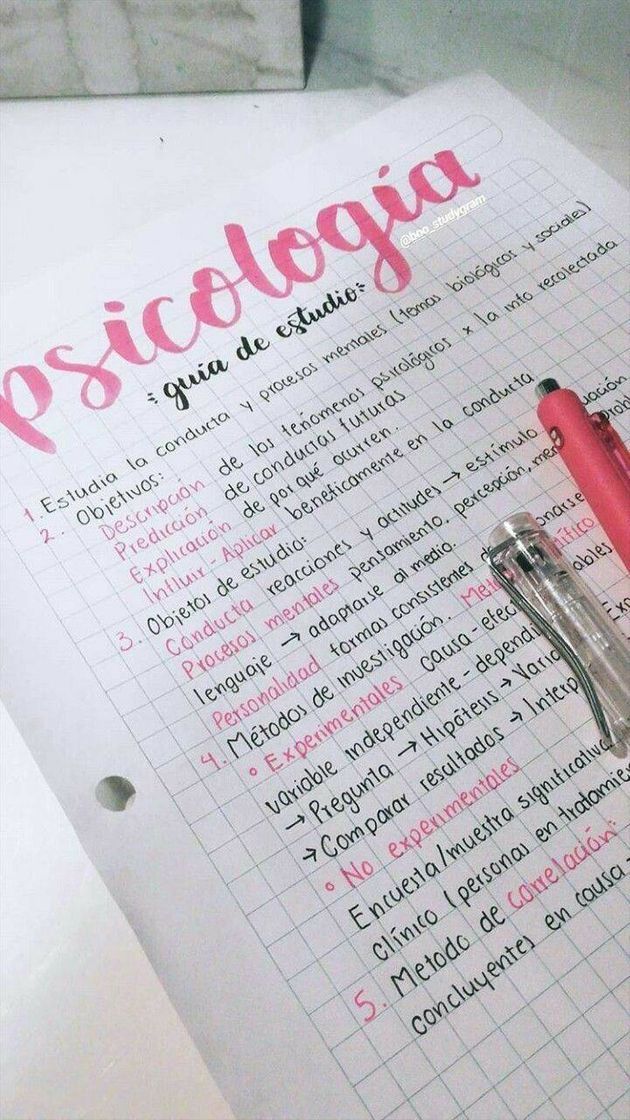 psicología
@boo_studygram
guía de estudio
1. Estudia la conducta y procesos mentales (temas biológicos y sociales)
2. Objetivos:
Descripción de los fenómenos psicológicos x la info recolectada
Predicción de conductas futuras
Explicación de por qué ocurren.
Influir - Aplicar benéficamente en la conducta
3. Objetos de estudio:
Conducta reacciones y actitudes → estímulo
Procesos mentales pensamiento, percepción,
lenguaje → adaptarse al medio.
Personalidad formas consistentes
4. Métodos de investigación.
° Experimentales causa - efec
variable independiente - depend
→ Pregunta → Hipótesis → Varia
→ Comparar resultados → Interp
° No experimentales
Encuesta/muestra significativa
clínico (personas en tratamie
5. Metodo de correlación:
concluyentes en causa -